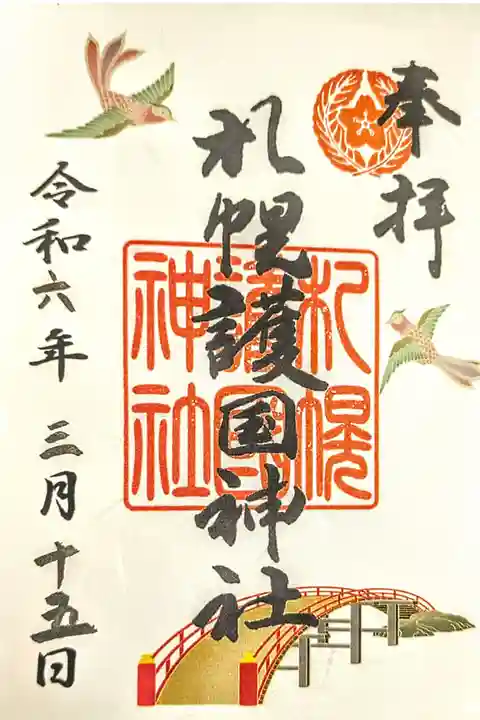 奉拝
札幌護国神社
札幌
護國
神社
令和六年 三月十五日